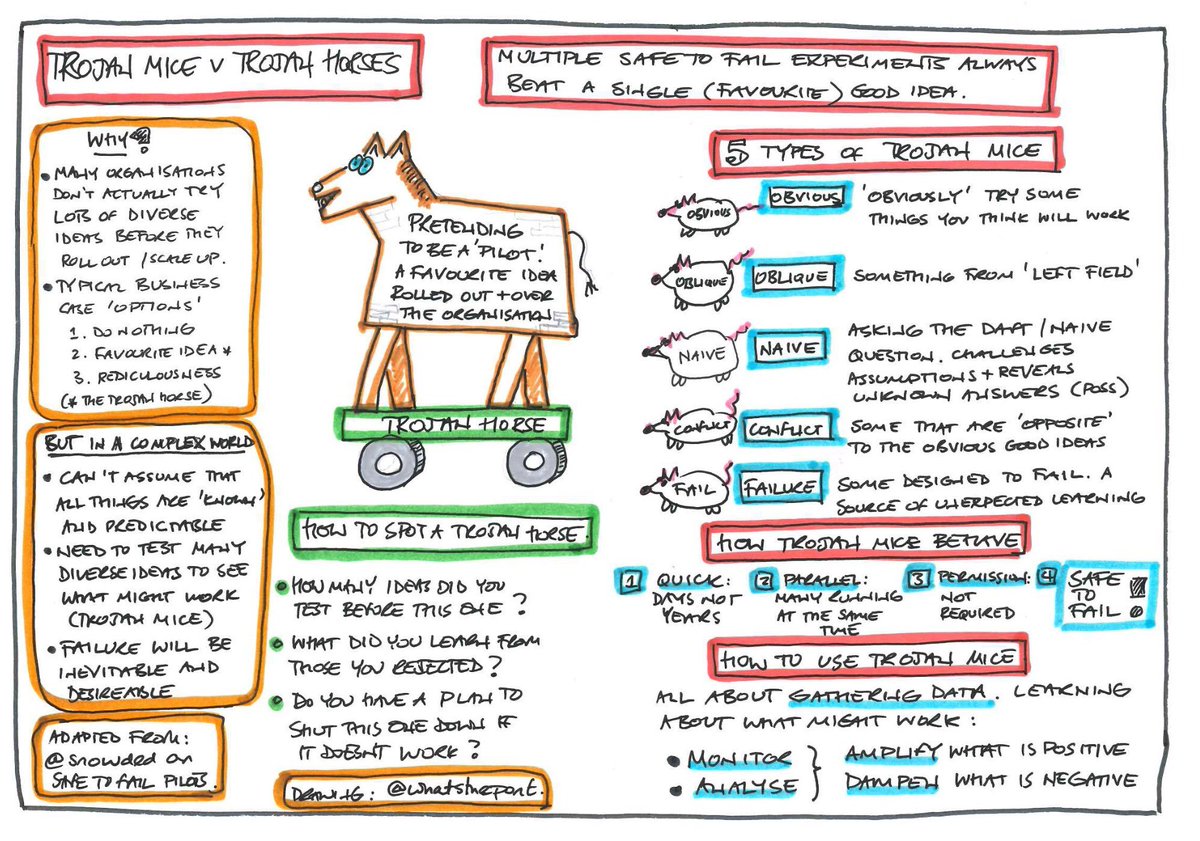 TROJAN MICE V TROJAN HORSES
MULTIPLE SAFE TO FAIL EXPERIMENTS ALWAYS
BEAT A SINGLE (FAVOURITE) GOOD IDEA.
WHY?
• MANY ORGANISATIONS
DON'T ACTUALLY TRY
LOTS OF DIVERSE
IDEAS BEFORE THEY
ROLL OUT / SCALE UP.
• TYPICAL BUSINESS
CASE 'OPTIONS'
1. DO NOTHING
2. FAVOURITE IDEA *
3. REDICULOUSNESS
(* THE TROJAN HORSE)
BUT IN A COMPLEX WORLD
• CAN'T ASSUME THAT
ALL THINGS ARE 'KNOWN'
AND PREDICTABLE
• NEED TO TEST MANY
DIVERSE IDEAS TO SEE
WHAT MIGHT WORK
(TROJAN MICE)
• FAILURE WILL BE
INEVITABLE AND
DESIREABLE
ADAPTED FROM:
@snowded on
SAFE TO FAIL PILOTS.
PRETENDING
TO BE A 'PILOT'!
A FAVOURITE IDEA
ROLLED OUT + OVER
THE ORGANISATION
TROJAN HORSE
HOW TO SPOT A TROJAN HORSE.
• HOW MANY IDEAS DID YOU
TEST BEFORE THIS ONE?
• WHAT DID YOU LEARN FROM
THOSE YOU REJECTED?
• DO YOU HAVE A PLAN TO
SHUT THIS ONE DOWN IF
IT DOESN'T WORK?
DRAWING: @whatsthepont.
5 TYPES OF TROJAN MICE
OBVIOUS
OBVIOUS
'OBVIOUSLY' TRY SOME
THINGS YOU THINK WILL WORK
OBLIQUE
OBLIQUE
SOMETHING FROM 'LEFT FIELD'
NAIVE
NAIVE
ASKING THE DAFT / NAIVE
QUESTION. CHALLENGES
ASSUMPTIONS + REVEALS
UNKNOWN ANSWERS (POSS)
CONFLICT
CONFLICT
SOME THAT ARE 'OPPOSITE'
TO THE OBVIOUS GOOD IDEAS
FAIL
FAILURE
SOME DESIGNED TO FAIL. A
SOURCE OF UNEXPECTED LEARNING
HOW TROJAN MICE BEHAVE
1 QUICK:
DAYS NOT
YEARS
2 PARALLEL:
MANY RUNNING
AT THE SAME
TIME
3 PERMISSION:
NOT
REQUIRED
4 SAFE
TO
FAIL !
HOW TO USE TROJAN MICE
ALL ABOUT GATHERING DATA. LEARNING
ABOUT WHAT MIGHT WORK:
• MONITOR
• ANALYSE
AMPLIFY WHAT IS POSITIVE
DAMPEN WHAT IS NEGATIVE